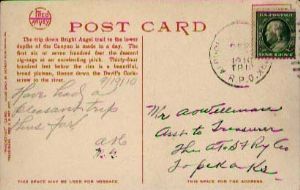 FRED HARVEY
POST CARD
The trip down Bright Angel trail to the lower
depths of the Canyon is made in a day. The
first six or seven hundred feet the descent
zig-zags at an accelerating pitch. Thirty-four
hundred feet below the rim is a beautiful,
broad plateau, thence down the Devil's Cork-
screw to the river.
9/19/10
Have had a
pleasant trip
thus far
1910
R.P.O.
Mr A
Asst to Treasurer
The A T & S F Ry Co
Topeka Ks
THIS SPACE MAY BE USED FOR MESSAGE
THIS SPACE FOR THE ADDRESS